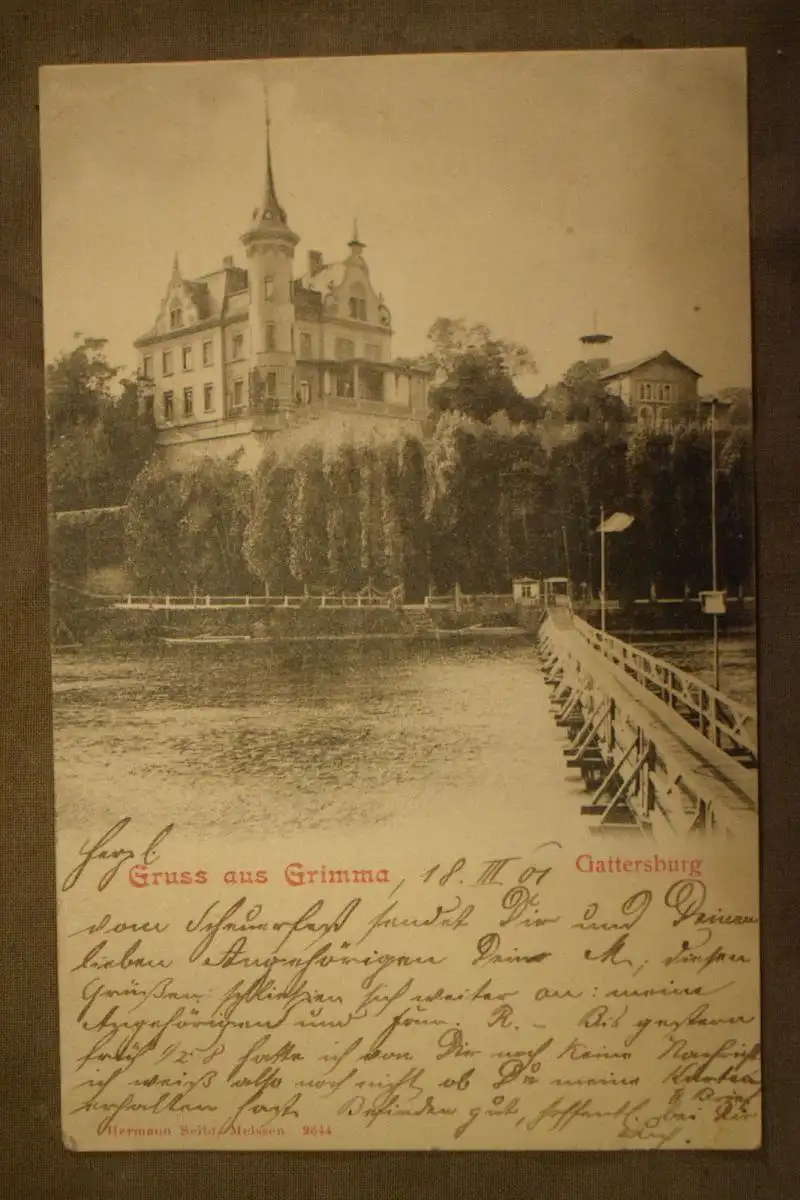 Herzl
Gruss aus Grimma, 18. III. 01 Gattersburg
vom Scheuerfest sendet Dir und Deinen
lieben Angehörigen Deine M., diesen
Grüßen schließen sich weiter an: meine
Angehörigen und R. – Bis gestern
früh 1/2 8 hatte ich von Dir noch keine Nachricht
ich weiß also noch nicht ob Du meine Karten
& Brief
erhalten hast. Befinden gut, hoffentl. bei Dir
auch.
Hermann Seibt, Meissen 2644